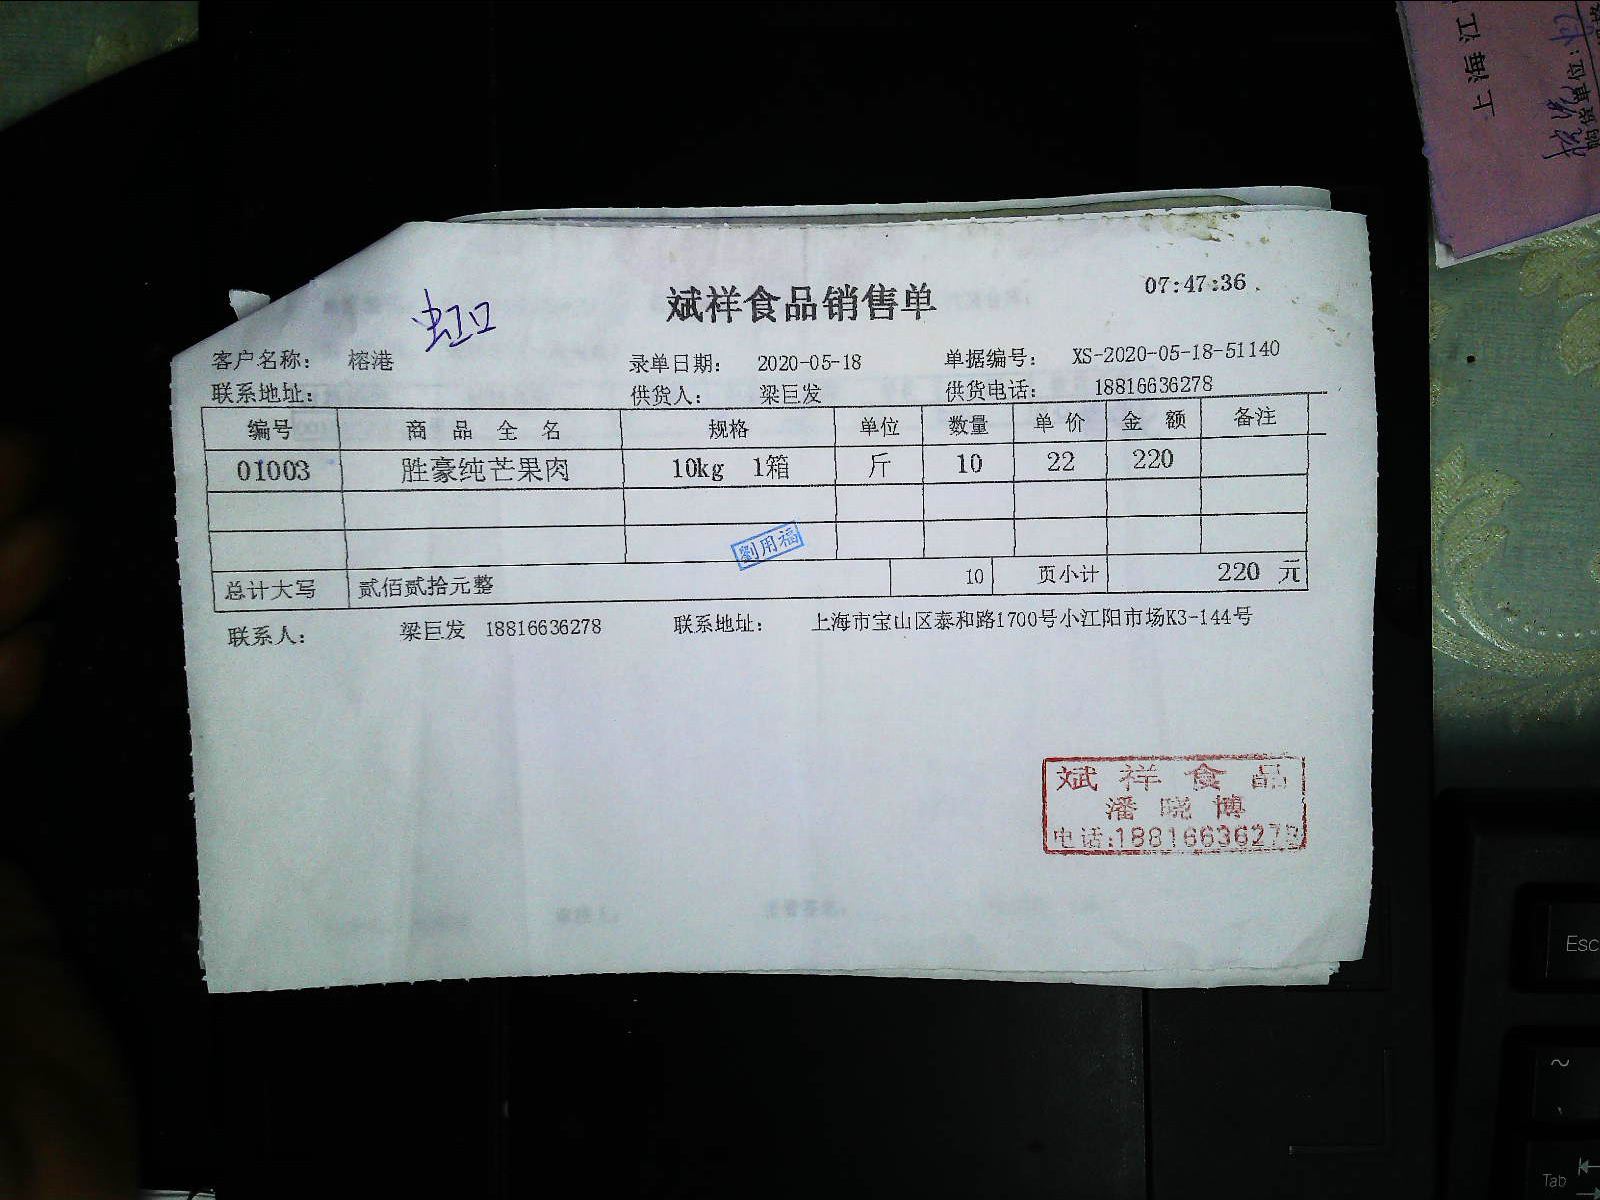 上海江
购货单位:
07:47:36
斌祥食品销售单
虹口
客户名称: 榕港 录单日期: 2020-05-18 单据编号: XS-2020-05-18-51140
联系地址: 供货人: 梁巨发 供货电话: 18816636278
编号 商品全名 规格 单位 数量 单价 金额 备注
01003 胜豪纯芒果肉 10kg 1箱 斤 10 22 220
劉用福
总计大写 贰佰贰拾元整 10 页小计 220 元
联系人: 梁巨发 18816636278 联系地址: 上海市宝山区泰和路1700号小江阳市场K3-144号
斌祥食品
潘晓博
电话:18816636278
Esc
~
Tab